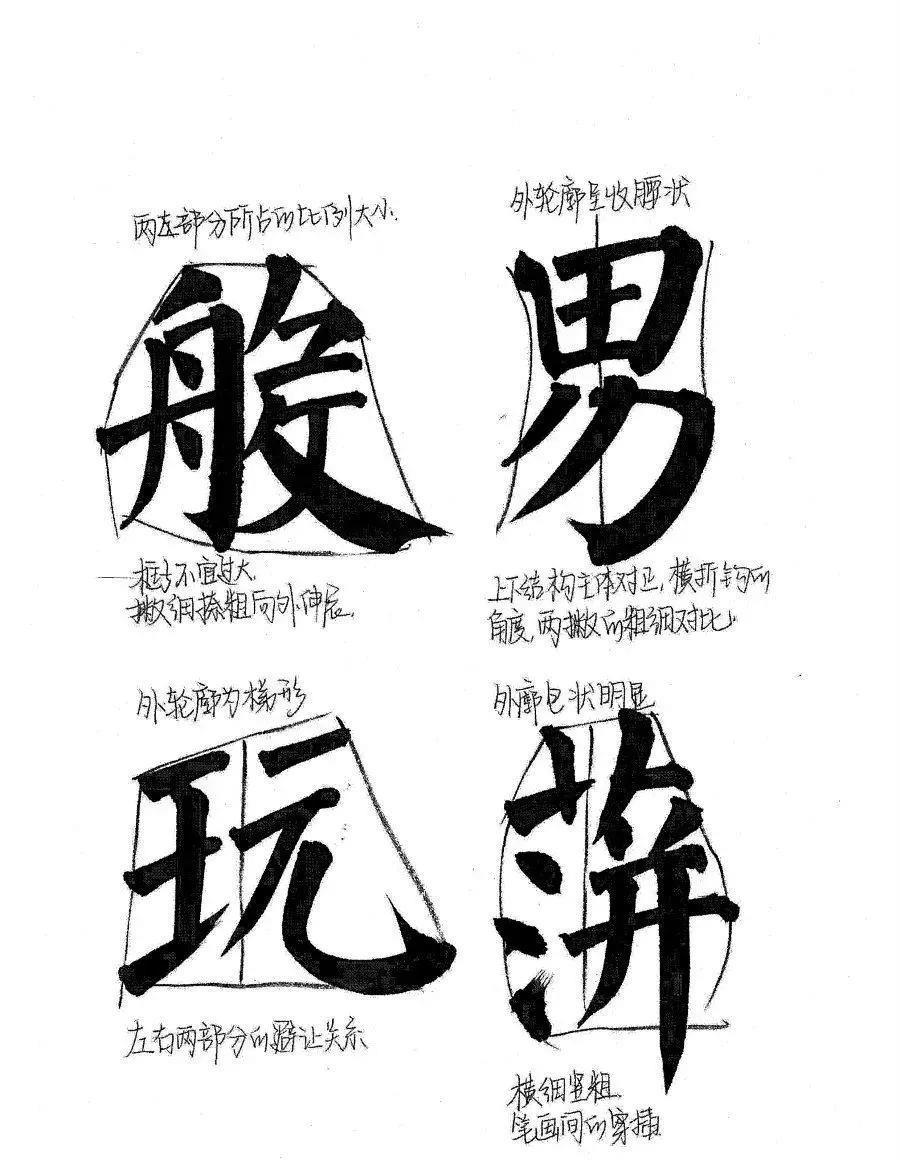 两左部分所占的比例大小.
般
框不宜过大
撇细捺粗向外伸展.
外轮廓呈收腰状
男
上下结构主体对正,横折钩的
角度,两撇的粗细对比.
外轮廓为梯形
玩
左右两部分的避让关系
外廓包状明显
蓱
横细竖粗.
笔画间的穿插.